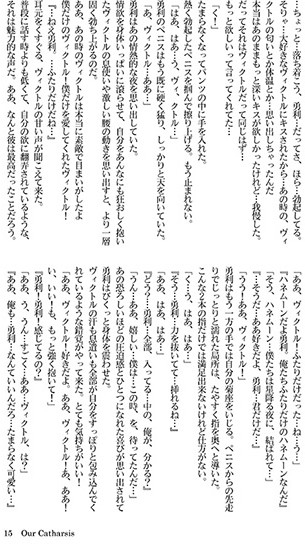 きっと…落ち着こう、勇利…だってさ、ほら…勃起してる。
そりゃ…大好きなヴィクトルにキスされたから…あの時の、ヴィ
クトルの匂いとか体温とか…思い出しちゃったんだ
本当はあのままもっと深いキスが欲しかったけれど…我慢した。
だってそれはヴィクトルだって同じはず…
もっと欲しいって言ってくれてた…
「く！」
たまらなくなってパンツの中に手を入れた。
熱く勃起したペニスを掴んで擦り上げる。もう止まれない。
「はぁ…はぁ…う、ヴィ、クトル…」
勇利のペニスはもう既に硬く猛り、しっかりと天を向いていた。
「あ、ヴィクトル…ああ…」
勇利はあの情熱的な夜を思い出していた。
情欲を身体いっぱいに滾らせて、自分をあんなにも狂おしく抱い
たヴィクトルの息使いや激しい腰の動きを思い出すと、より一層
固く勃ち上がるのだ。
ああ、あの時のヴィクトルは本当に素敵で目まいがしたよ
僕だけのヴィクトル！僕だけを愛してくれたヴィクトル！
『…ねえ勇利、…ふたりだけだね…』
耳元をすすぐる、ヴィクトルの甘い声が聞こえて来た。
普段に話す時よりも低くて、自分の欲に翻弄されているような、
それは魅力的な声だ。ああ、なんと彼は最高だったことだろう。
「ああ、ヴィクトル！ふたりだけだった…ね…う…」
『ハネムーンだよ勇利。俺たちふたりだけのハネムーンなんだ』
「そう、ハネムーン…僕たちは星降る夜に、結ばれて…」
『…そうだ…ああ好きだよ、勇利…君だけだ…』
「うう！あぁ、ヴィクトル！」
勇利はもう一方の手では自分の菊座をいじる。ペニスからの先走
りでじっとりと濡れた局所は、たやすく指を奥へと導いた。
こんな2本の指だけでは満足出来ないけれど仕方がない。
「く…う、はぁ、はぁ…」
『そう…勇利…力を抜いてて…挿れるね…』
「ああ、はぁ、はぁ…」
『どう？…勇利…全部、入ってる…中の、俺が、分かる？』
「うん…あぁ、嬉しい…僕は…この時、を、待ってたんだ…」
あの恐ろしいほどの圧迫感とひとつになれた喜びが思い出されて
勇利はびくっと身体を震わせた。
ヴィクトルの汗も息遣いも全部が自分をすっぽりと包み込んでく
れているような錯覚がやって来た。とても気持ちがいい！
「ああ、ヴィクトル！好きだよ、ああ、ヴィクトル！あ、ああ！
い、いい！も、もっと強く抜いて！」
『勇利！勇利！感じてるの？』
「ああ、う、うん…すごく…ああ…ヴィクトル、は？」
『ああ、俺も…勇利…なんていいんだろう…たまらなく可愛い…』
15 Our Catharsis